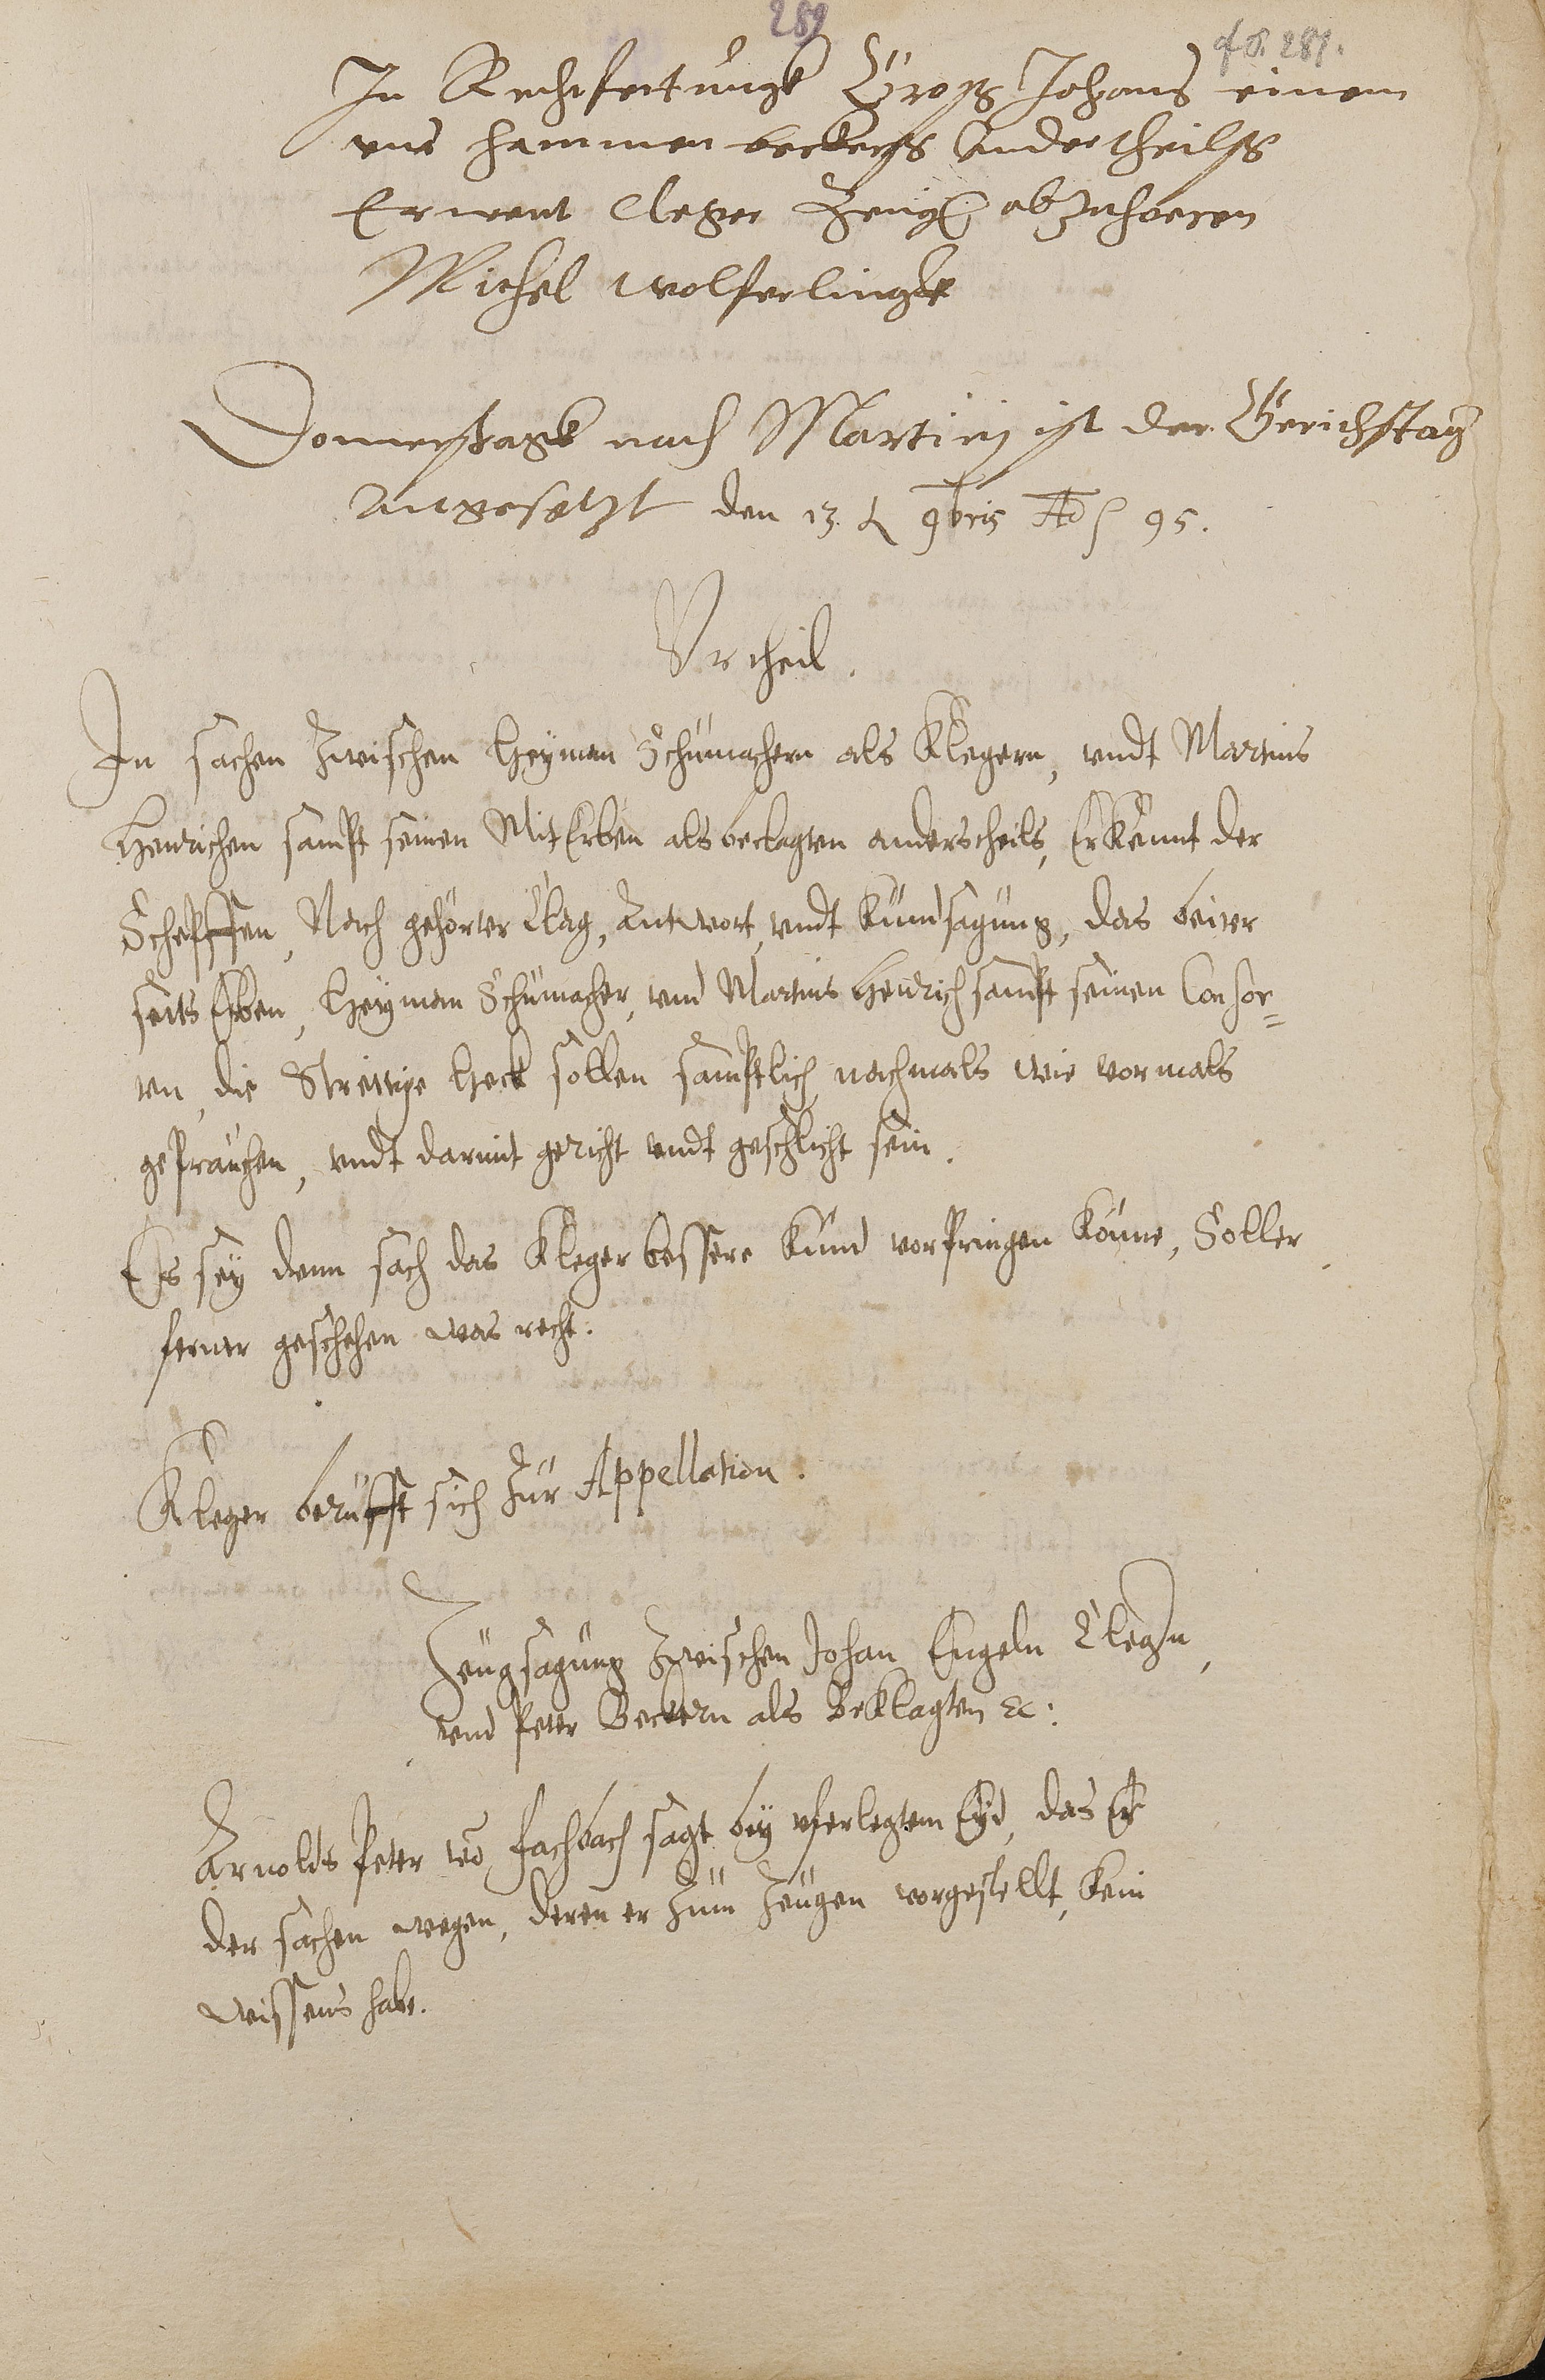 289
fo. 289.
In Rechtfertungk Groß Johans einem
vnd hammen beckers Andertheilß
Ernent Cleger Zeugen abzuhoeren
Michel wolferlingk
Donnerstagk nach Martinj ist der Gerichstag
Angesetzt den 13. 9bris Ao 95.
Vrtheil.
In sachen zwischen Heyman Schumachern als Klegern, vndt Martins
Henrichen sampt seinen MitErben als beclagten anderstheils, Erkennt der
Scheffen, Nach gehörter Clag, Antwort, vndt Kundsagung, das beider
seits Erben, Heyman Schumacher, vnd Martins Henrich sampt seinen Consor=
ten, die Strettige Heck sollen samptlich nachmals wie vormals
geprauchen, vndt darmit gericht vndt geschlicht sein.
Es sey dann sach das Kleger bessere Kund vorpringen könne, Soll er
ferner geschehen was recht.
Kleger berufft sich zur Appellation.
Zeugsagung zwischen Johan Engeln Clegern,
vnd Peter Beckern als Beklagten &c:
Arnolds Peter vo Fachbach sagt bey vferlegtem Eyd, das Er
der sachen wegen, deren er zum Zeugen vorgestellt, kein
wissens habe.